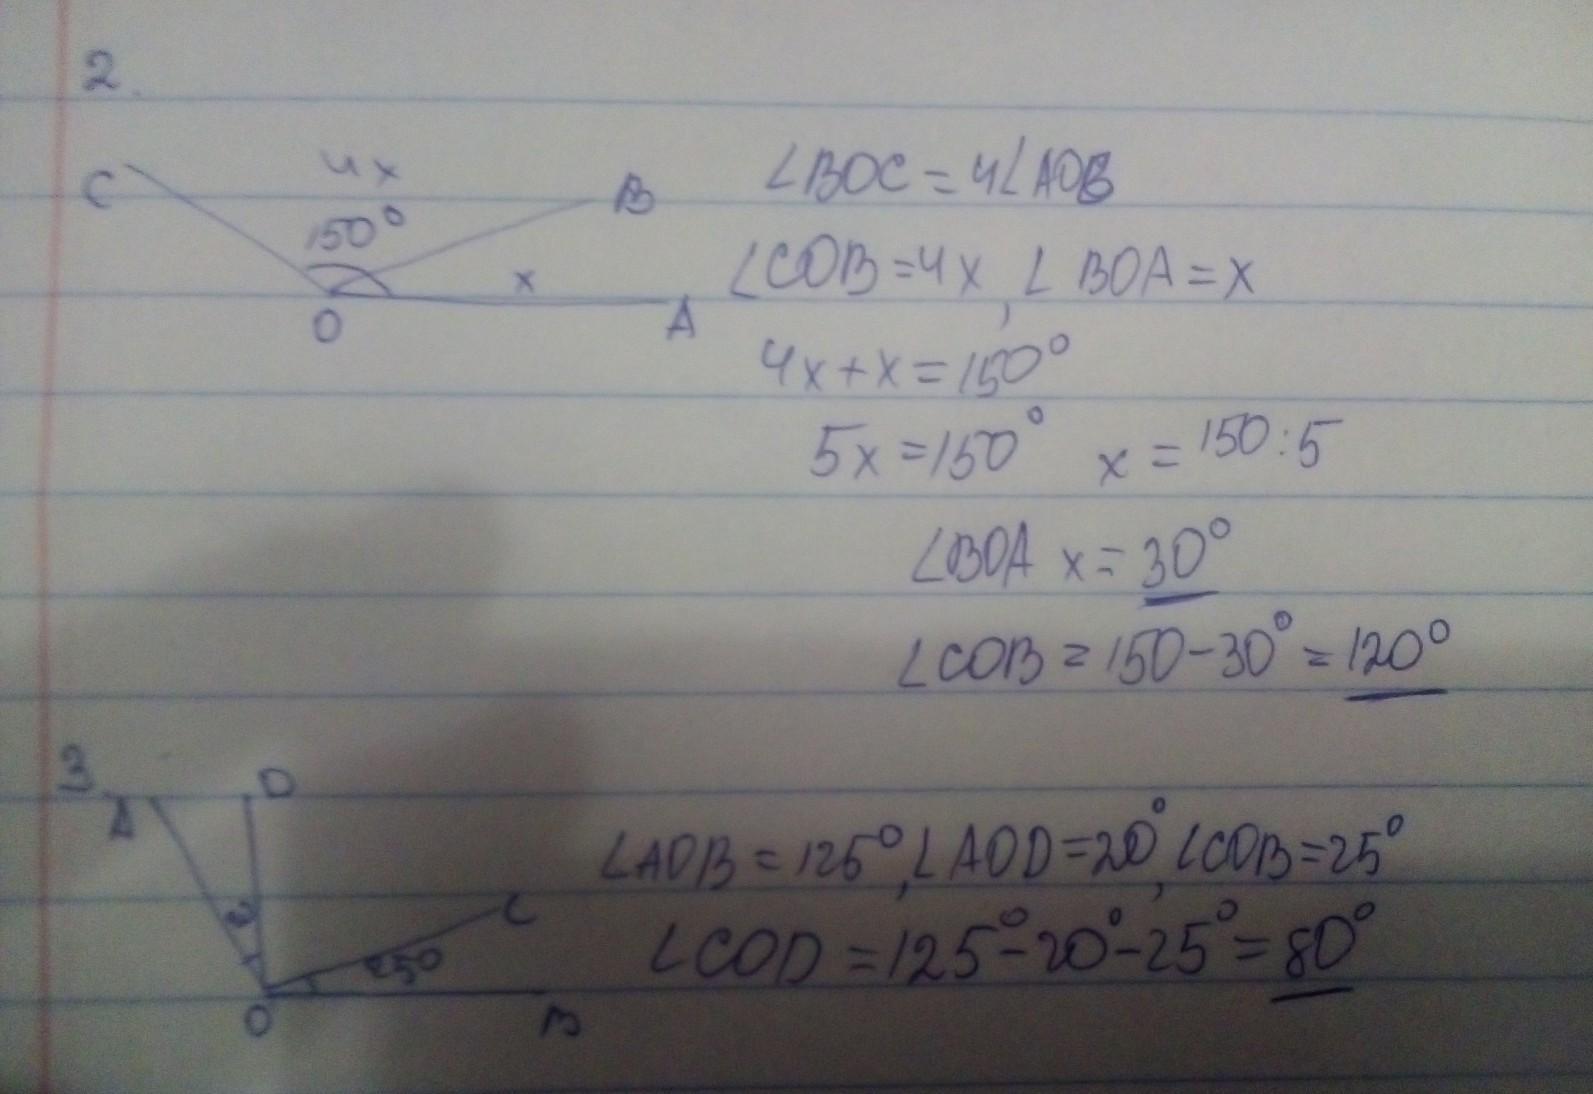 2.
C 4x B
150°
x
O A
∠BOC = 4∠AOB
∠COB = 4x, ∠BOA = x
4x + x = 150°
5x = 150° x = 150:5
∠BOA x = 30°
∠COB = 150 - 30° = 120°
3.
A D
C
25°
O B
∠AOB = 125°, ∠AOD = 20°, ∠COB = 25°
∠COD = 125° - 20° - 25° = 80°